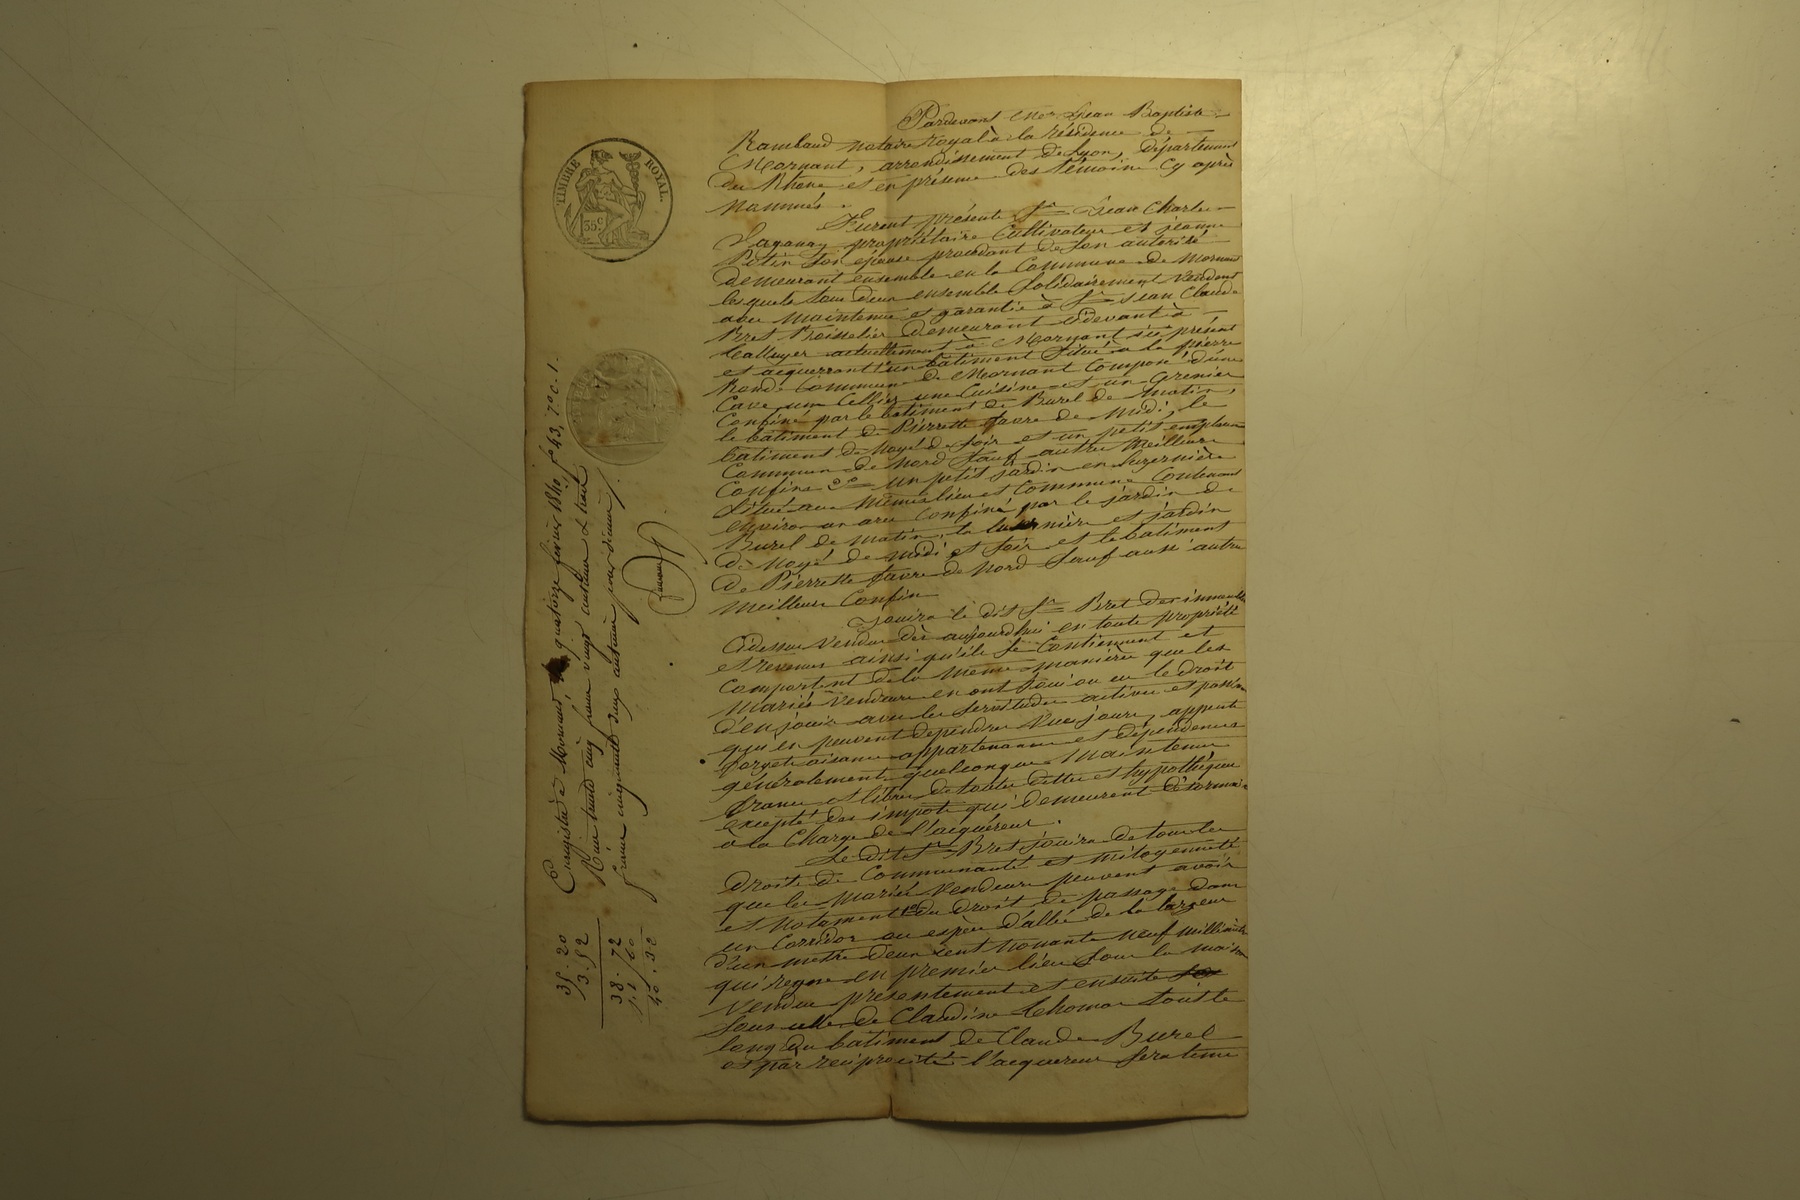 TIMBRE ROYAL
35c
Pardevant Me Jean Baptiste
Rambaud notaire royal à la résidence de
Mornant, arrondissement de Lyon, département
du Rhone et en présence des témoins cy après
nommés.
Furent présents Sr Jean Charles
propriétaire Cultivateur et jeanne
Potin son épouse procédant de son autorité
demeurant ensemble en la Commune de Mornant
lesquels tous deux ensemble solidairement vendent
avec maintenue et garantie à Sr Jean Claude
Bret demeurant cidevant à
actuellement à Mornant ici présent
et acquerrant 1° un bâtiment situé à la pierre
Ronde Commune de Mornant Composé d'une
Cave un Cellier une Cuisine et un Grenier
Confiné par le bâtiment de Burel de Matin,
le bâtiment de Pierrette favre de Midi, le
batiment de Noyé de soir et un petit emplace
Commun de Nord sauf autre Meilleure
Confins 2° un petit jardin en luzernière
situé au même lieu et Commune Contenant
environ un are Confiné par le jardin de
Burel de matin, la luzernière et jardin
de Noyé de midi et soir et le batiment
de Pierrette favre de Nord sauf aussi autre
Meilleure Confins
Jouira le dit Sr Bret des immeubles
Cidessus Vendus dès aujourdhui en toute propriété
et revenus ainsi qu'ils se Contiennent et
Comportent de la Même manière que les
Mariés Vendeurs en ont joui ou eu le droit
d'en jouir avec les servitudes actives et passives
qui en peuvent dépendre Vues jours, appent
forget aisances appartenances et dépendances
généralement quelconques Maintenus
francs et libres de toutes dettes et hypothèques
excepté des impots qui demeurent désormais
à la Charge de l'acquéreur.
Le dit Sr Bret jouira de tous les
Droits de Communauté et mitoyenneté
que les Mariés Vendeurs peuvent avoir
et Notament du Droit de passage dans
un Corridor ou espèce d'allée de la largeur
d'un mètre deux cent nonante neuf millimètres
qui regne en premier lieu sous la maison
Vendue presentement et ensuite
sous celle de Claudine Thomas tout le
long du batiment de Claude Burel
et par réciprocité l'acquereur sera tenu
Enregistré à Mornant le quatorze février 1840, f° 43, r° c. 1.
Reçu trente cinq francs vingt centimes & trois
francs cinquante deux centimes pour dixième.
35.20
3.52
38.72
1.60
40.32